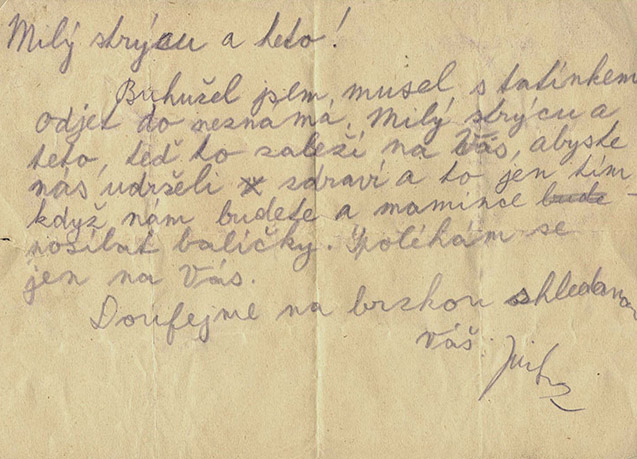 Milý strýcu a teto!
Buhužel jsem musel s tatínkem
odjet do neznáma. Milý strýcu a
teto, teď to zaleží na Vás, abyste
nás udrželi zdraví a to jen tím
když nám budete a mamince bude
posílat balíčky. Spoléhám se
jen na Vás.
Doufejme na brzkou shledanou
Váš